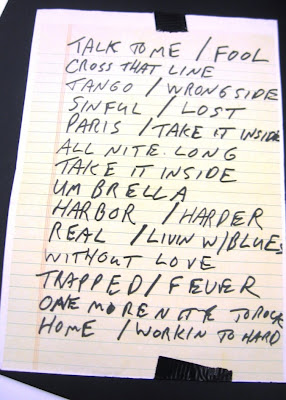 TALK TO ME / FOOL
CROSS THAT LINE
TANGO / WRONG SIDE
SINFUL / LOST
PARIS / TAKE IT INSIDE
ALL NITE LONG
TAKE IT INSIDE
UMBRELLA
HARBOR / HARDER
REAL / LIVIN W/BLUES
WITHOUT LOVE
TRAPPED / FEVER
ONE MORE NITE TO ROCK
HOME / WORKIN TO HARD